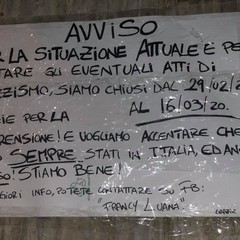 AVVISO
LA SITUAZIONE ATTUALE E PE
TARE GLI EVENTUALI ATTI DI
ZZISMO, SIAMO CHIUSI DAL 29/02/2
AL 16/03/20.
ZIE PER LA
PRENSIONE! E VOGLIAMO ACCENTARE CHE
SEMPRE STATI IN ITALIA, ED AN
STIAMO BENE!
GIORI INFO, POTETE CONTATTARE SU FB:
"FRANCY LUANA"